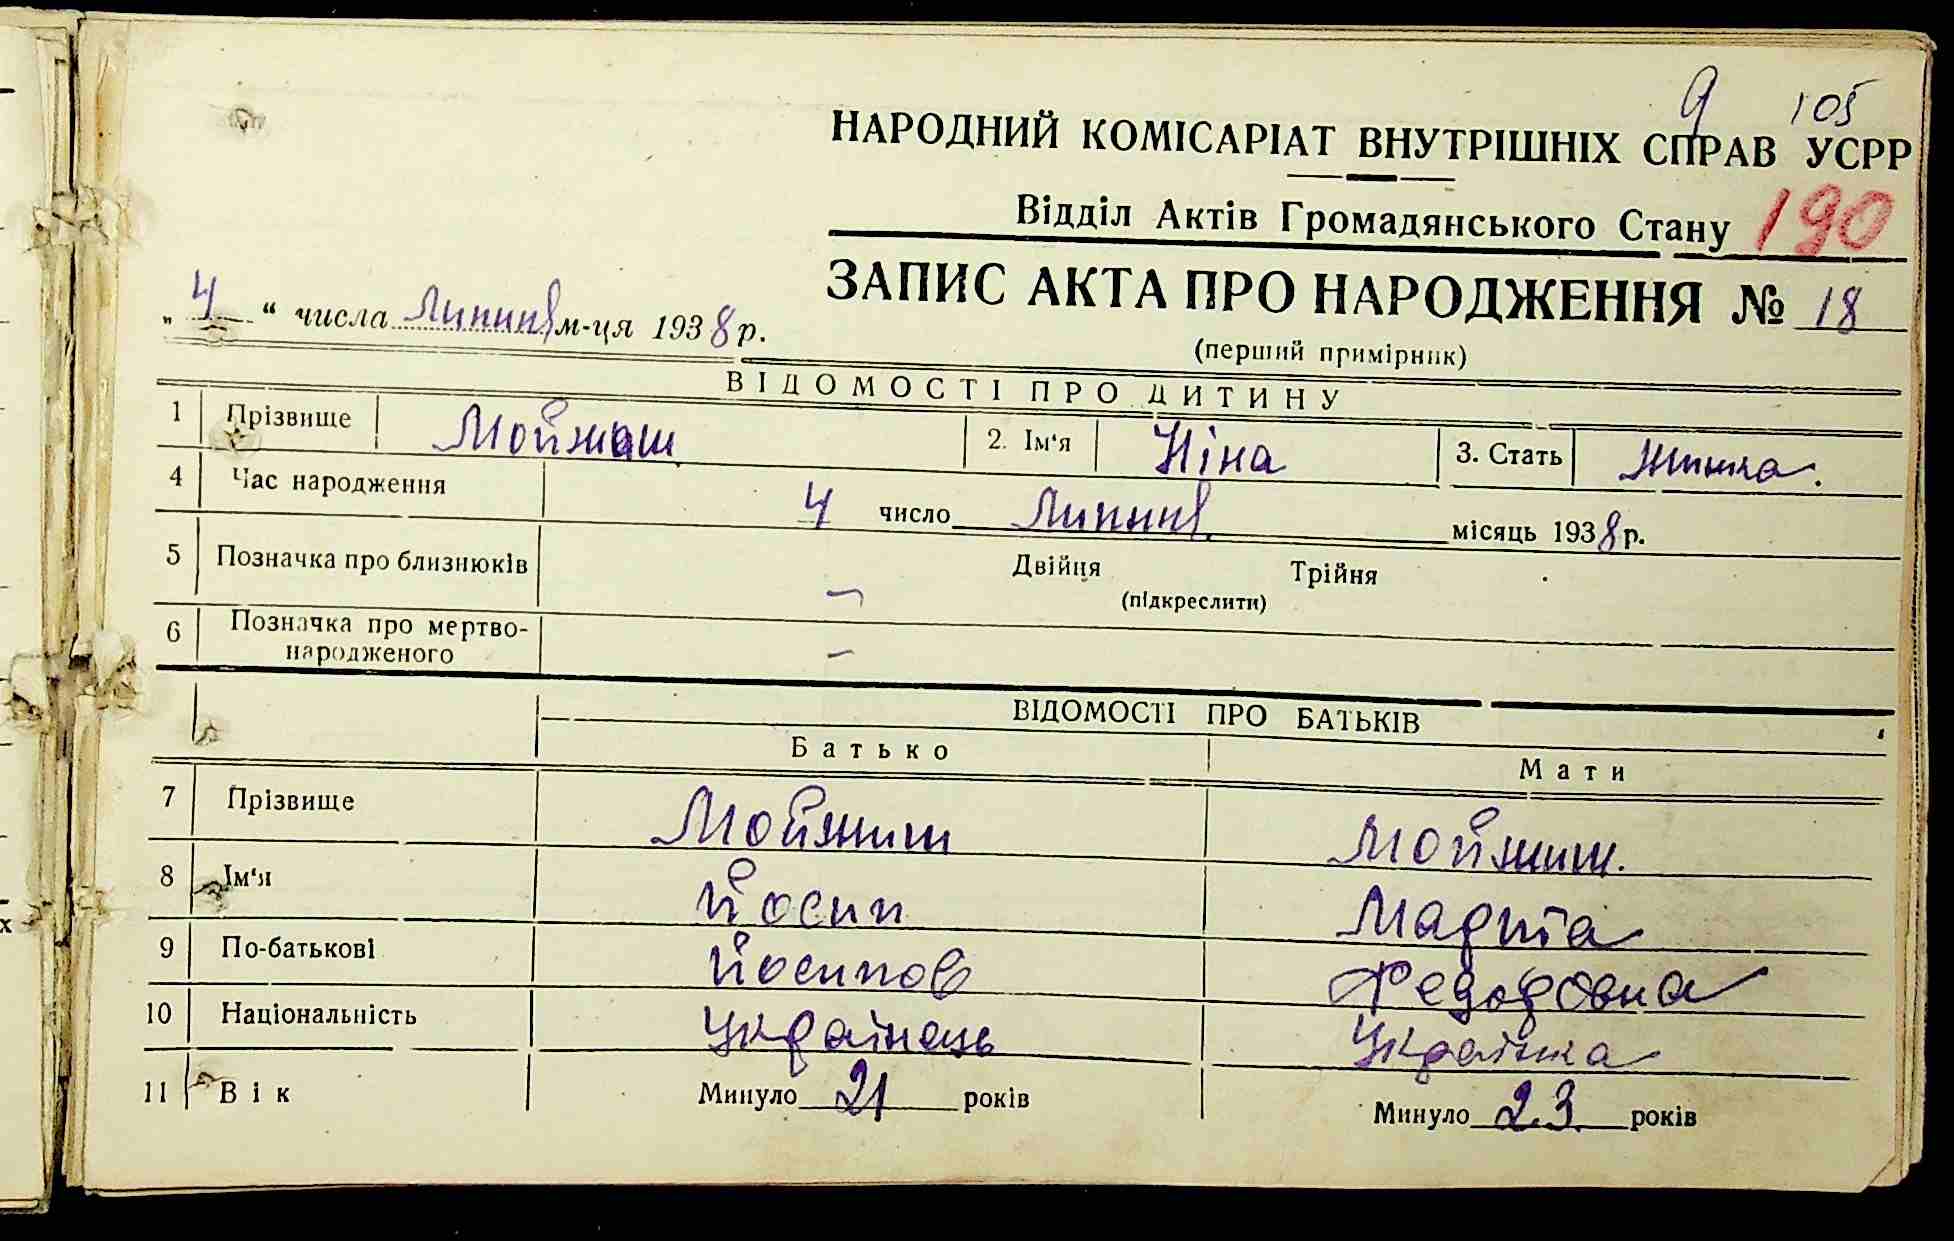 9 105
НАРОДНИЙ КОМІСАРІАТ ВНУТРІШНІХ СПРАВ УСРР
Відділ Актів Громадянського Стану 190
ЗАПИС АКТА ПРО НАРОДЖЕННЯ № 18
„ 4 “ числа Липння м-ця 1938 р.
(перший примірник)
ВІДОМОСТІ ПРО ДИТИНУ
1 Прізвище 2. Ім'я Ніна 3. Стать
4 Час народження 4 число Липння місяць 1938 р.
5 Позначка про близнюків — Двійця Трійня
(підкреслити)
6 Позначка про мертво-
народженого —
ВІДОМОСТІ ПРО БАТЬКІВ
Батько Мати
7 Прізвище
8 Ім'я Йосип
9 По-батькові Йосипов Федоровна
10 Національність Українець Українка
11 Вік Минуло 21 років Минуло 23 років